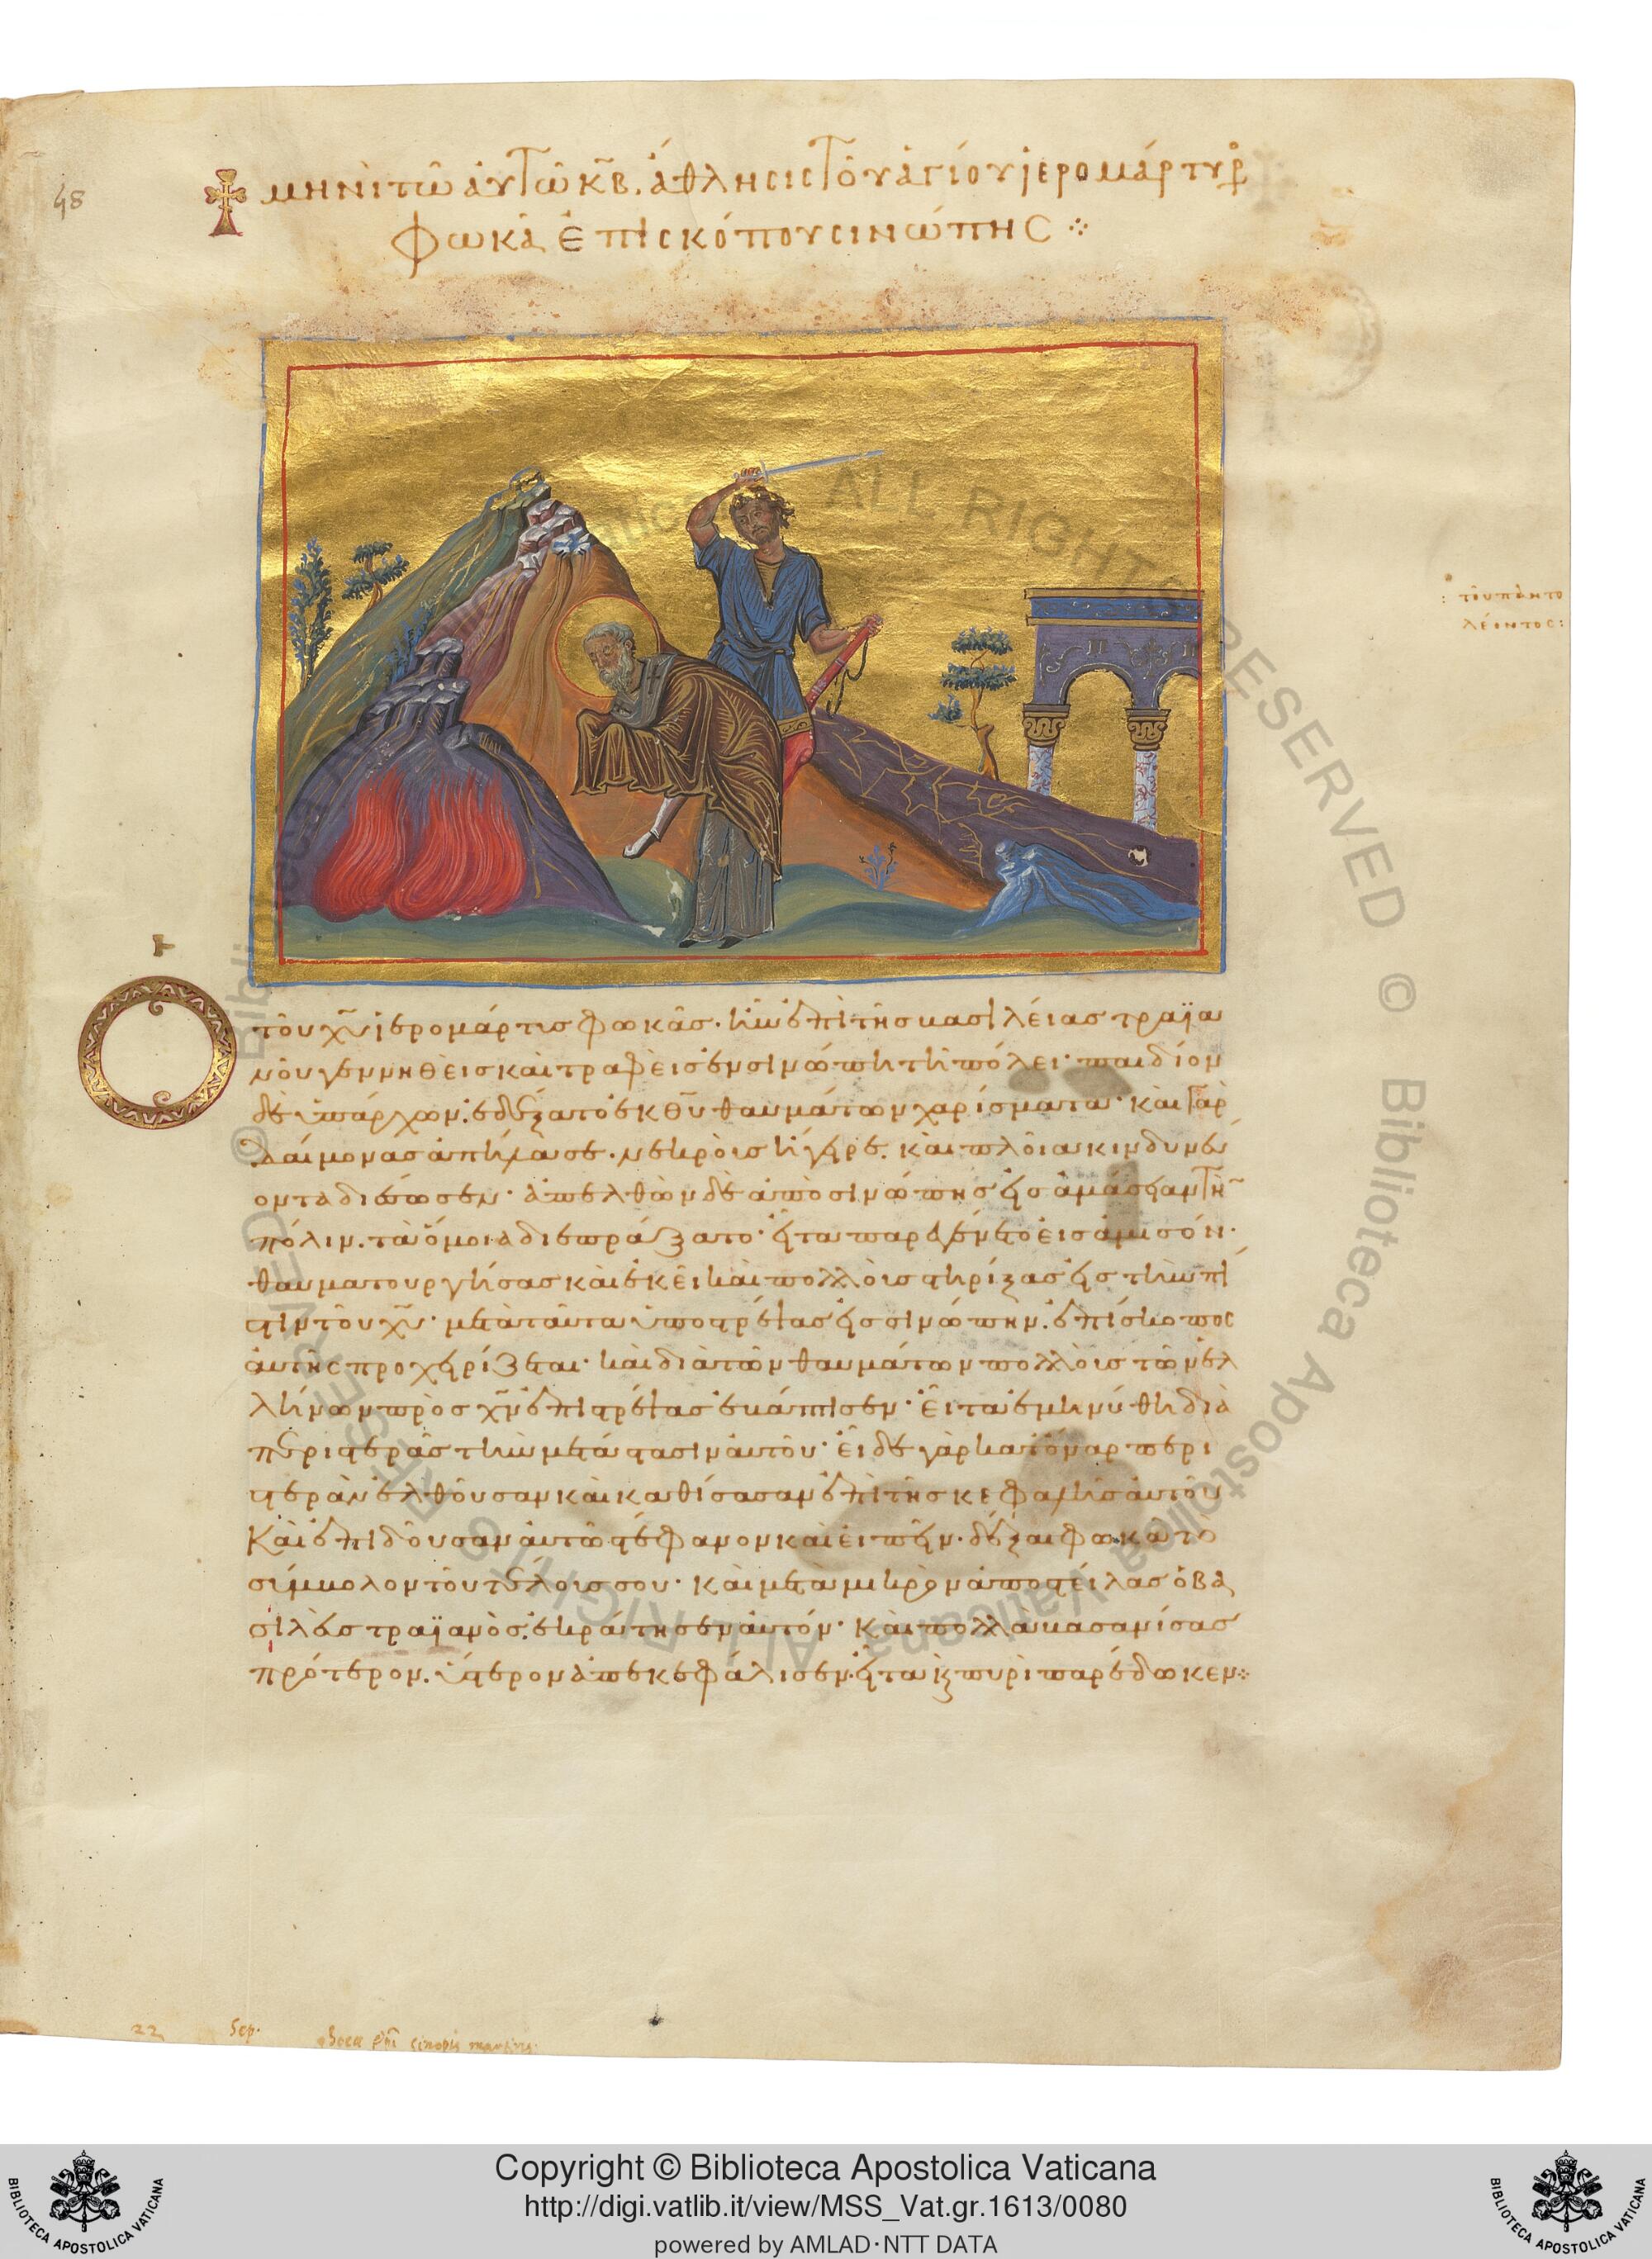 48
μηνὶ τῶ αὐτῶ κβ. ἄθλησις τοῦ ἁγίου ἱερομάρτυρ
φωκᾶ ἐπισκόπου σινώπης ⁘
τοῦ παντο
λέοντος:
Ὁ τοῦ χυ ἱερομάρτυς φωκᾶς. ἦν ἐπὶ τῆς βασιλείας τραϊα
νοῦ γεννηθεὶς καὶ τραφεὶς ἐν σινώπη τῆ πόλει· παιδίον
δὲ ὑπάρχων. ἐδέξατο ἐκ θυ θαυμάτων χαρίσματα· καὶ γὰρ
δαίμονας ἀπήλασε. νεκροὺς ἤγειρε. καὶ πλοῖα κινδυνεύ
οντα διέσωσεν· ἀπελθὼν δὲ ἀπὸ σινώπης εἰς ἀμάσειαν τὴν
πόλιν. τὰ ὅμοια διεπράξατο· εἶτα παρεγένετο εἰς ἀμισόν·
θαυματουργήσας κἀκεῖ καὶ πολλοὺς στηρίξας εἰς τὴν πί
στιν τοῦ χυ· μετὰ ταῦτα ὑποστρέψας εἰς σινώπην. ἐπίσκοπος
αὐτῆς προχειρίζεται· καὶ διὰ τῶν θαυμάτων πολλοὺς τῶν ἑλ
λήνων πρὸς χν ἐπιστρέψας ἐβάπτισεν· εἶτα ἐμηνύθη διὰ
περιστερᾶς τὴν μετάστασιν αὐτοῦ· εἶδε γὰρ κατόναρ περι
στερὰν ἐλθοῦσαν καὶ καθίσασαν ἐπὶ τῆς κεφαλῆς αὐτοῦ
καὶ ἐπιδοῦσαν αὐτῶ στέφανον καὶ εἰπεῖν. δέξαι φωκᾶ τὸ
σύμβολον τοῦ τέλους σου· καὶ μετὰ μικρὸν ἀποστείλας ὁ βα
σιλεὺς τραϊανὸς. ἐκράτησεν αὐτόν· καὶ πολλὰ βασανίσας
πρότερον. ὕστερον ἀπεκεφάλισεν. εἶτα καὶ πυρὶ παρέδωκεν⁘
22 Sep.
© Biblioteca Apostolica Vaticana ALL RIGHTS RESERVED
Copyright © Biblioteca Apostolica Vaticana
http://digi.vatlib.it/view/MSS_Vat.gr.1613/0080
powered by AMLAD·NTT DATA
BIBLIOTECA APOSTOLICA VATICANA
BIBLIOTECA APOSTOLICA VATICANA